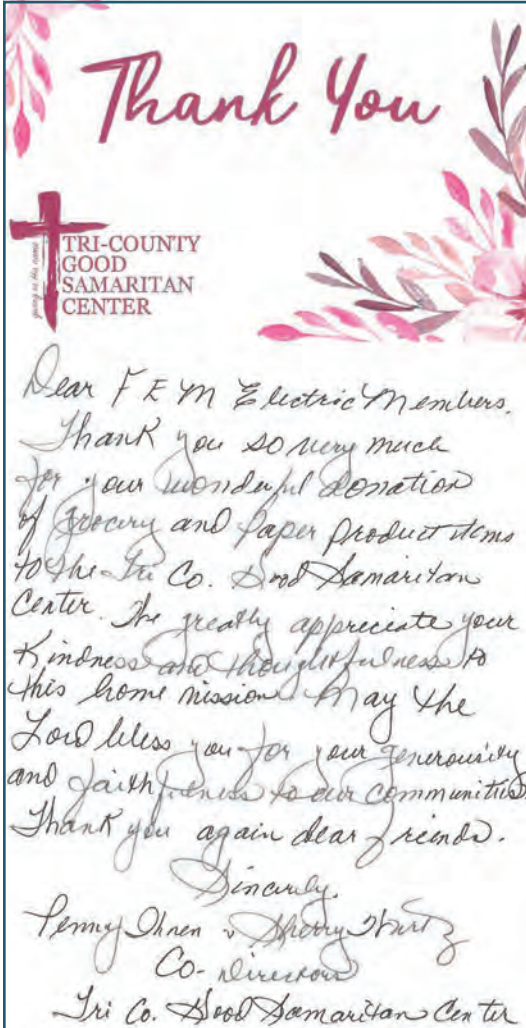 Thank You
giving in His name
TRI-COUNTY
GOOD
SAMARITAN
CENTER
Dear F E M Electric Members,
Thank you so very much
for your wonderful donation
of Grocery and Paper Product items
to the Tri Co. Good Samaritan
Center. We greatly appreciate your
Kindness and thoughtfulness to
this home mission. May the
Lord bless you for your generousity
and faithfulness to our communities.
Thank you again dear friends.
Sincerely,
Penny Ihnen & Sherry
Co-Directors
Tri Co. Good Samaritan Center